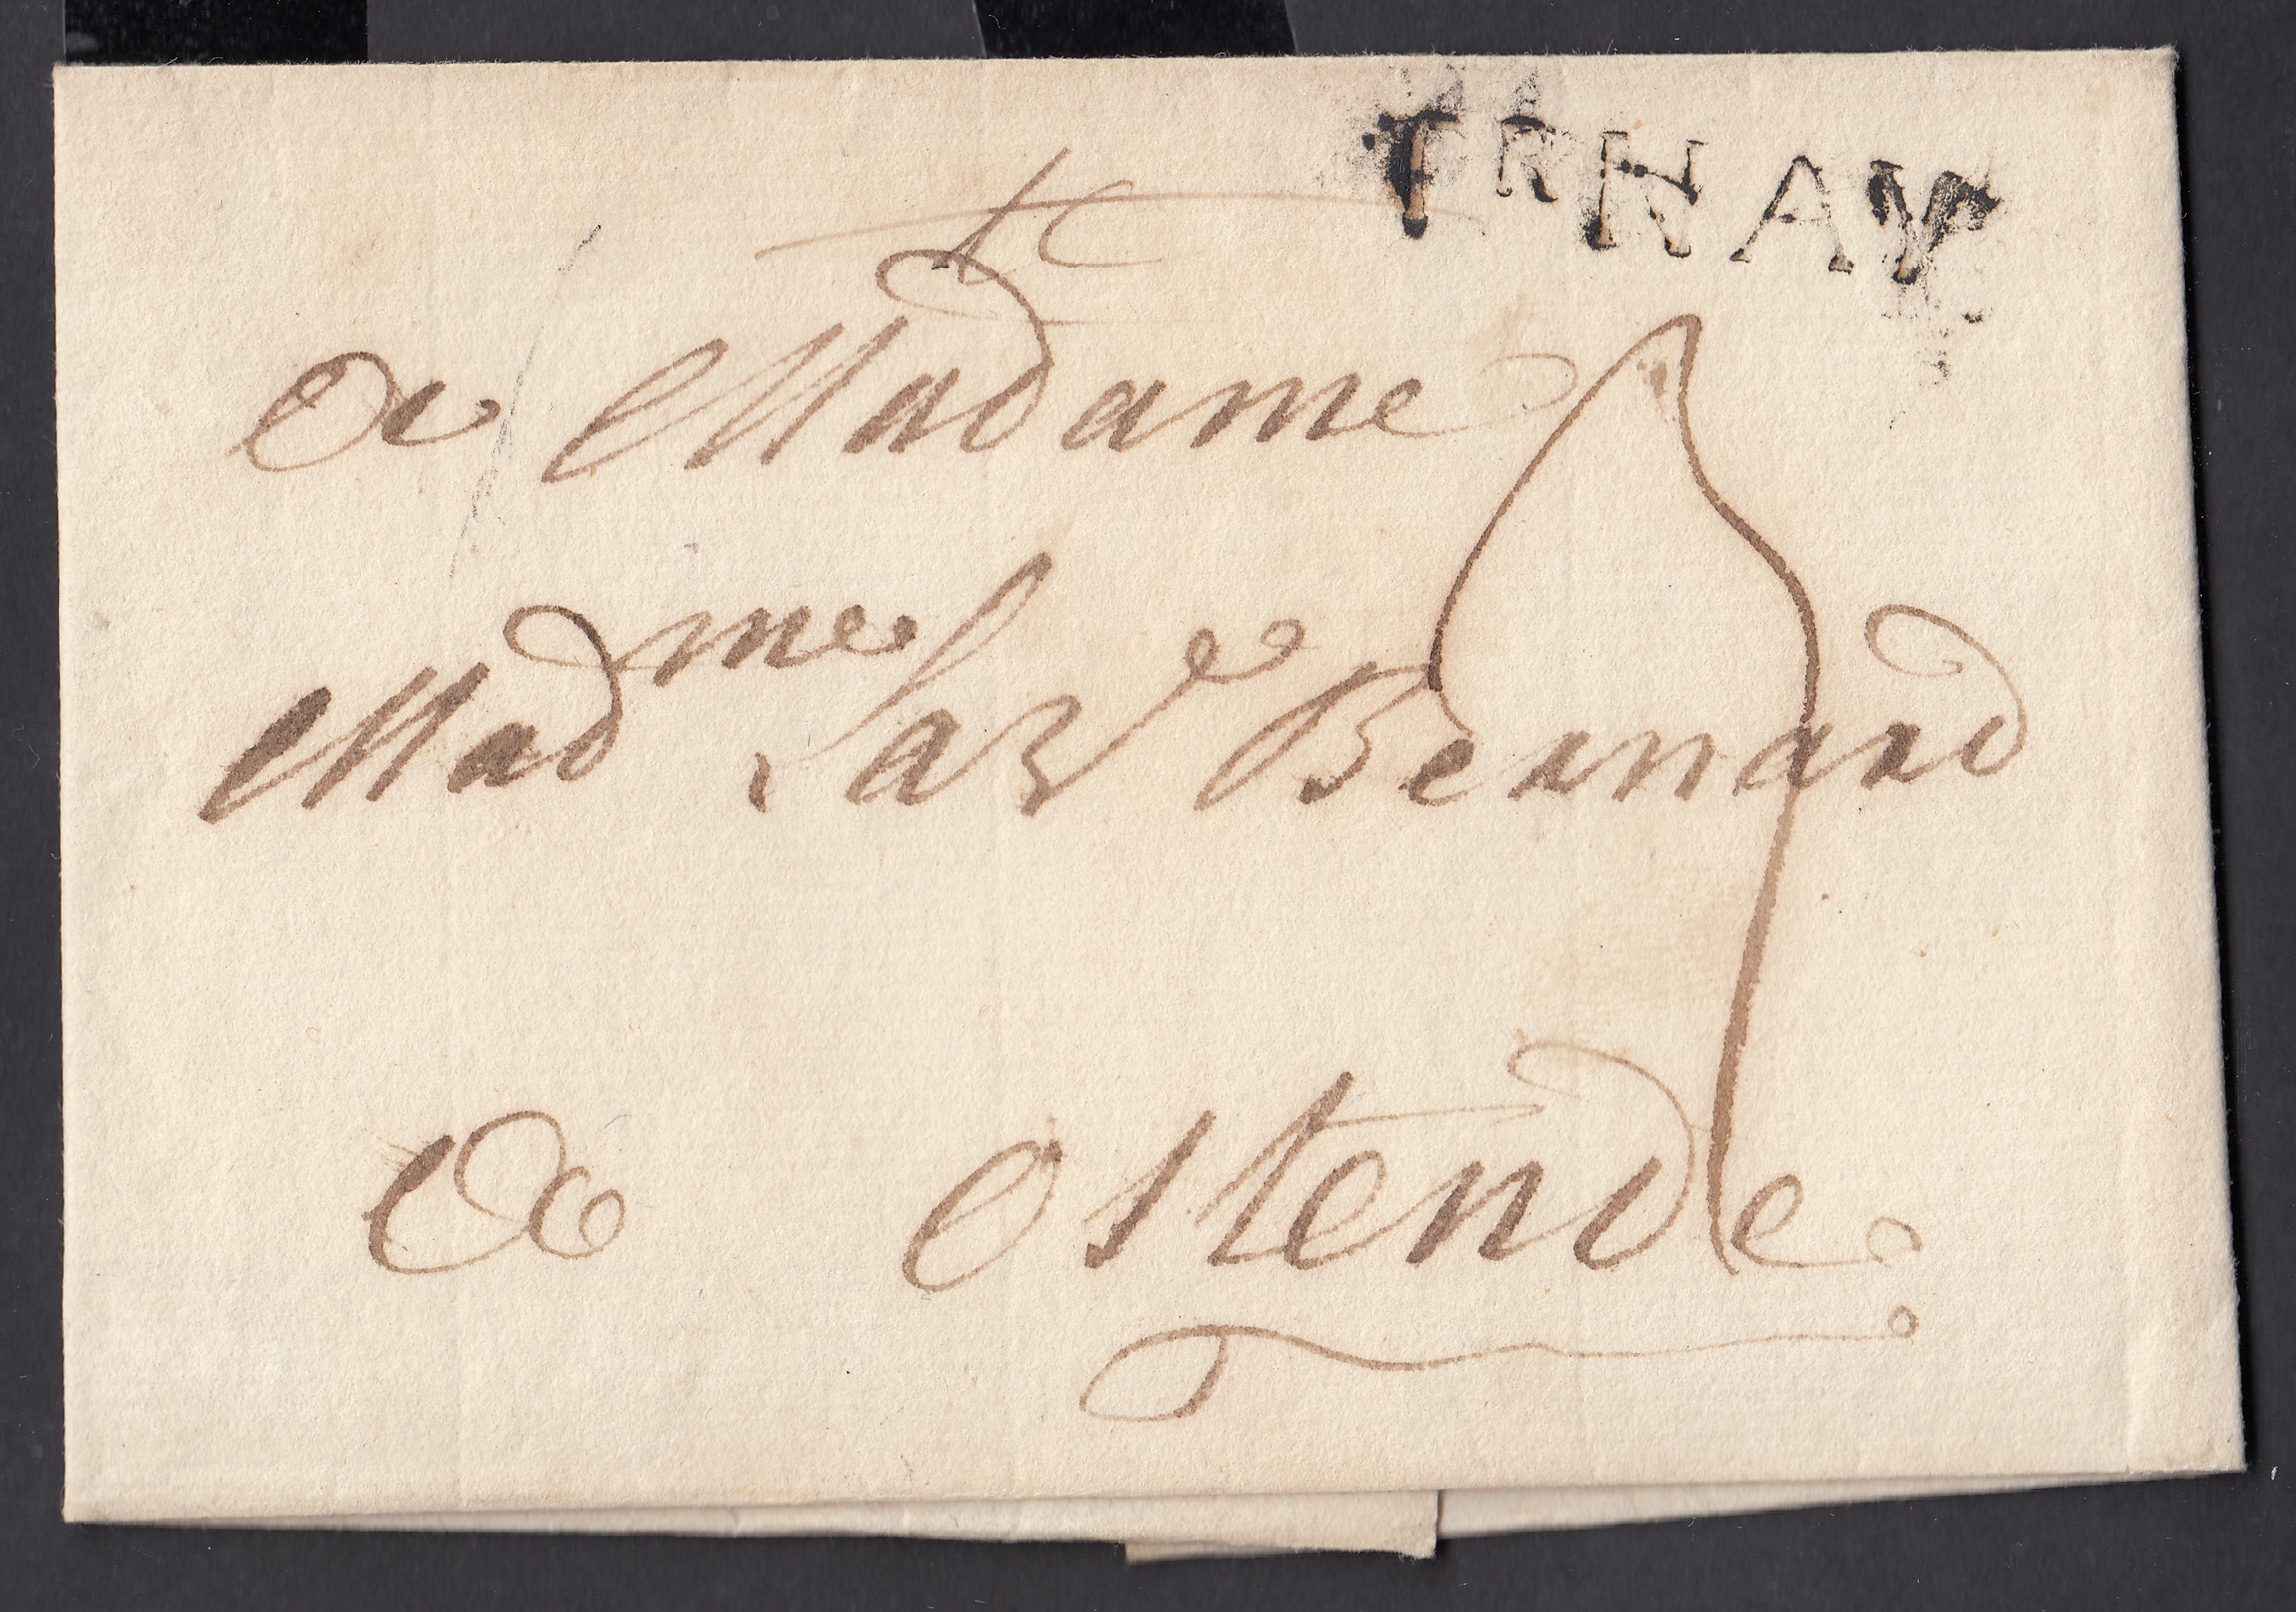 TRNAY
A Madame
Madme La Ve Bernard
A Ostende